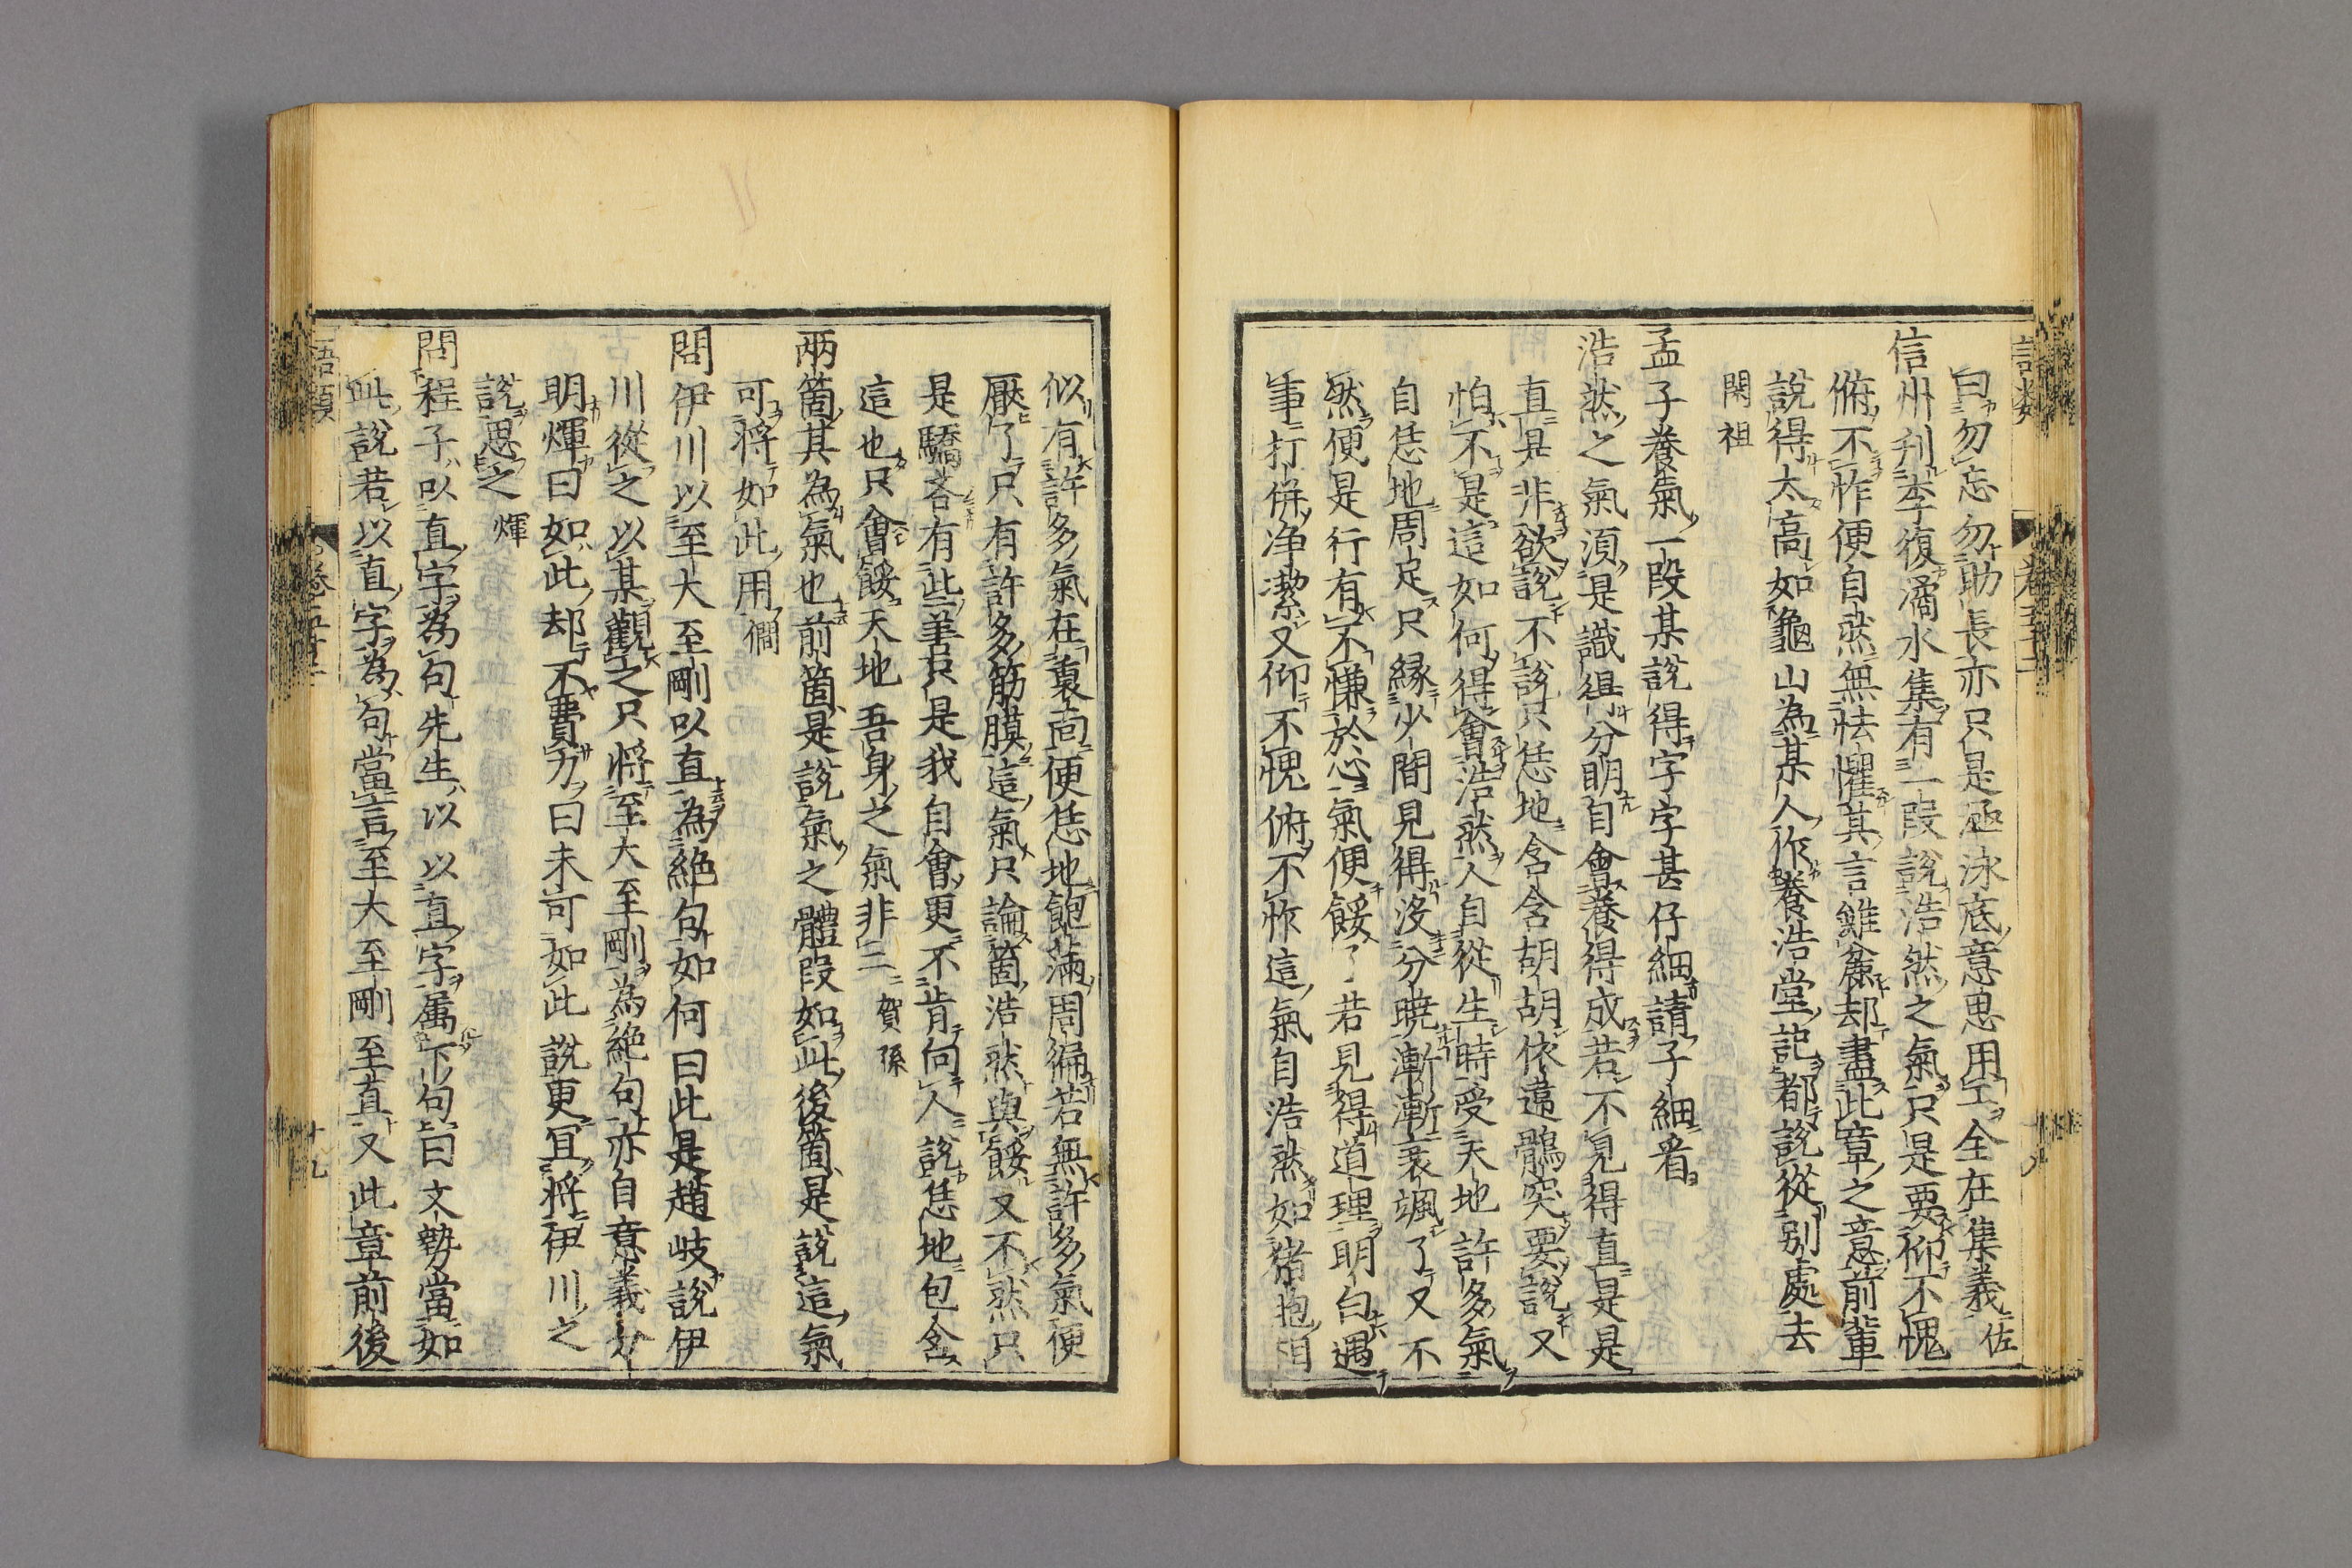 曰勿忘勿助長亦只是涵泳底意思用工全在集義佐
信州刋李復潏水集有一段說浩然之氣只是要仰不愧
俯不怍便自然無怯懼其言雖麄却盡此章之意前軰
說得太高如龜山為某人作養浩堂記都說從别處去
閎祖
孟子養氣一段某說得字字甚仔細請子細看
浩然之氣湏是識得分明自會養得成若不見得直是是
直是非欲說不說只恁地含含胡胡依違鶻突要說又
怕不是這如何得會浩然人自從生時受天地許多氣
自恁地周足只縁少間見得没分曉漸漸衰颯了又不
然便是行有不慊於心氣便餒了若見得道理明白遇
事打併净潔又仰不愧俯不怍這氣自浩然如猪抱相
似有許多氣在裏面便恁地飽滿周徧若無許多氣便
厭了只有許多筋膜這氣只論箇浩然與餒又不然只
是驕吝有些善只是我自會更不肯向人說恁地包含
這也只會餒天地吾身之氣非二 賀孫
兩箇其為氣也前箇是說氣之體段如此後箇是說這氣
可將如此用 僩
問伊川以至大至剛以直為絶句如何曰此是趙岐說伊
川從之以某觀之只將至大至剛為絶句亦自意義分
明煇曰如此却不費力曰未可如此說更且將伊川之
說思之 煇
問程子以直字為句先生以以直字属下句曰文勢當如
此說若以直字為句當言至大至剛至直又此章前後
語類 卷五十二 十九